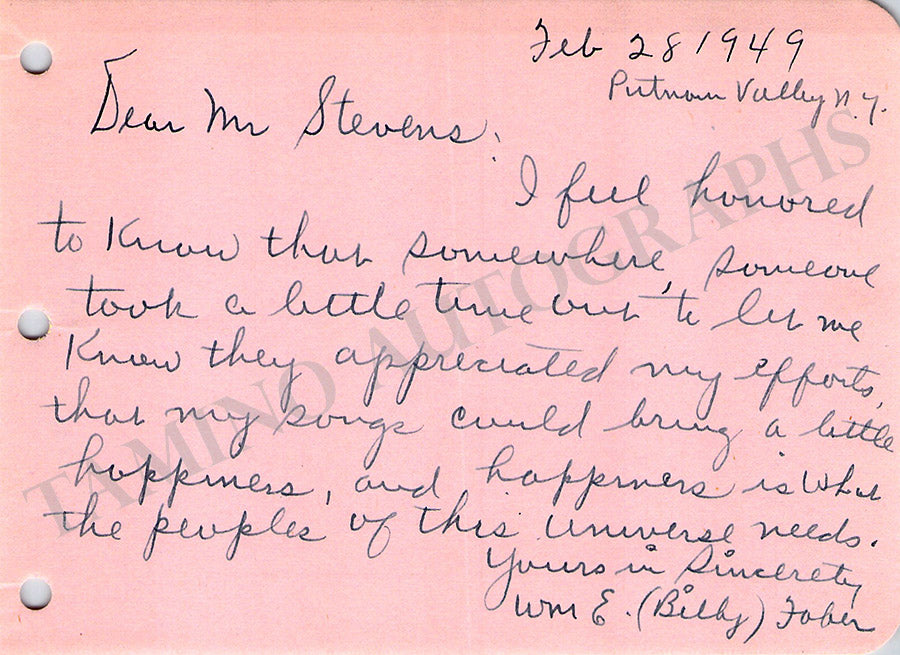 Feb 28 1949
Putnam Valley N.Y.
Dear Mr Stevens:
I feel honored
to know that somewhere, someone
took a little time out to let me
know they appreciated my efforts,
that my songs could bring a little
happiness, and happiness is what
the peoples of this universe needs.
Yours in Sincerety
Wm E. (Billy) Faber
TAMINO AUTOGRAPHS